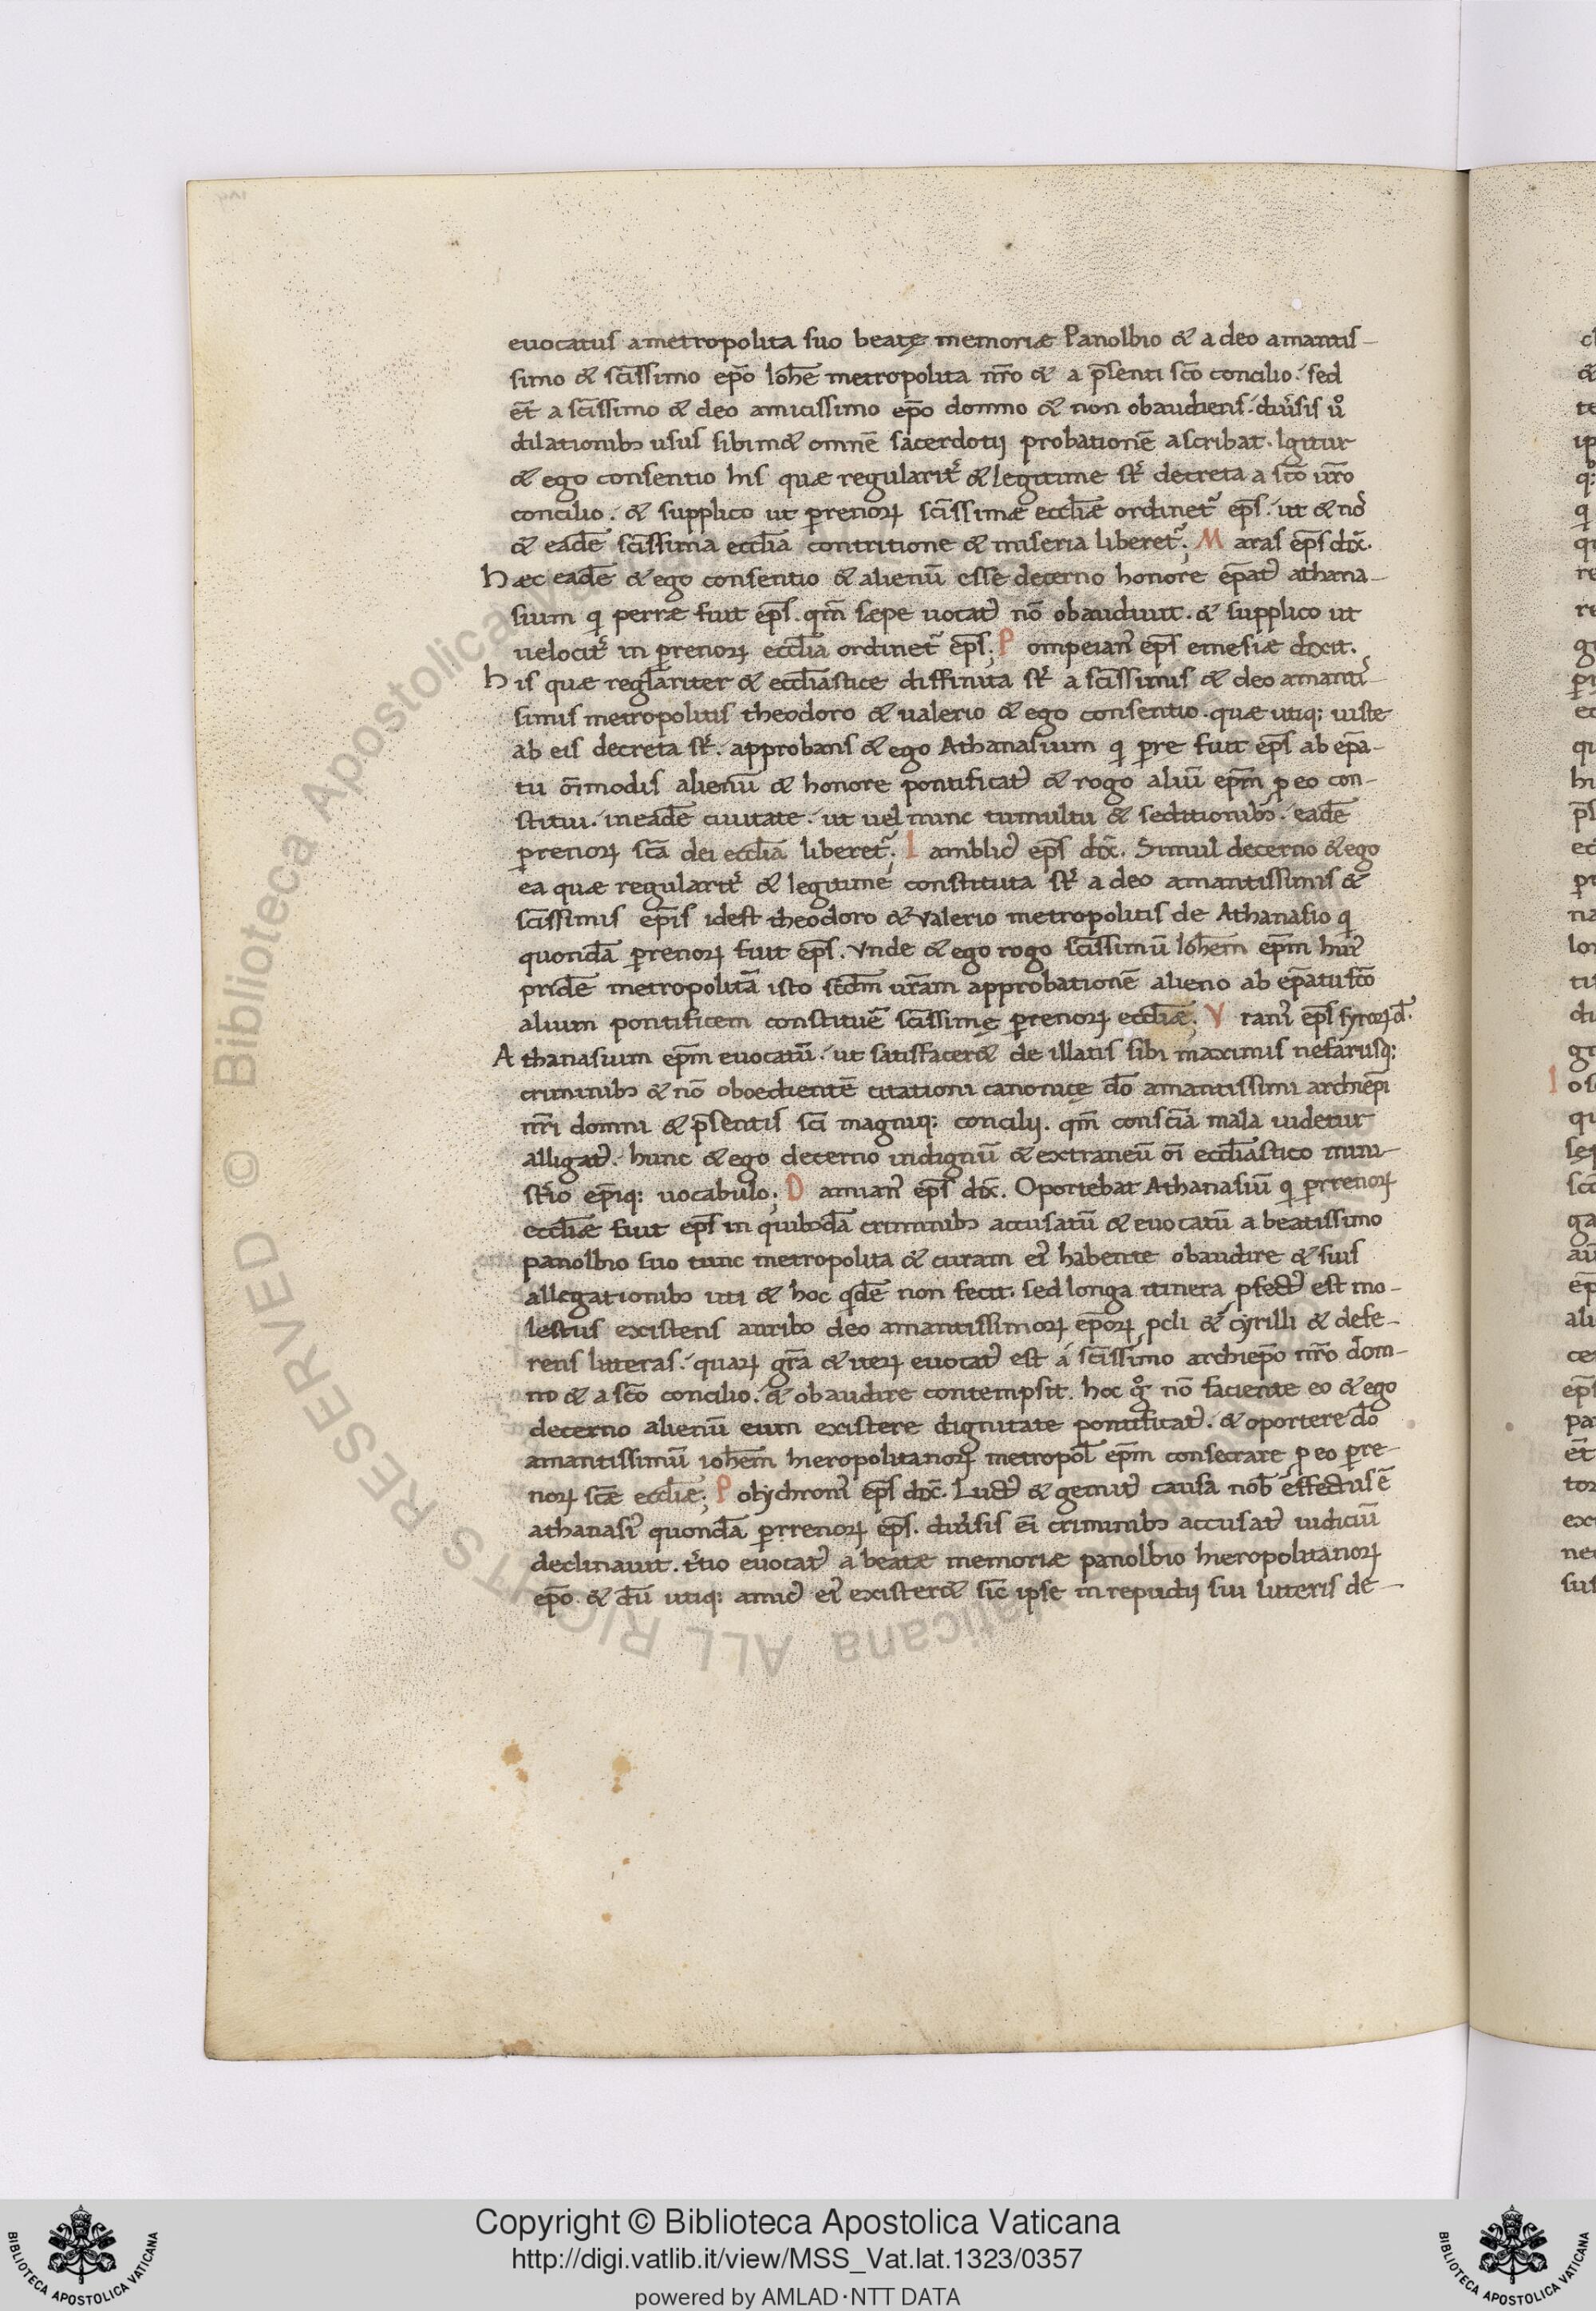 euocatus a metropolita suo beatę memoriæ Panolbio & a deo amantis-
simo & sc̄issimo ep̄o Ioh̄e metropolita nr̄o & a p̄senti sc̄o concilio. sed
et̄ a sc̄issimo & deo amicissimo ep̄o domno & non obaudiens. diuͥsis ůͦ
dilationibꝫ usus sibim& omnē sacerdotij probationē ascribat. Igitur
& ego consentio his quæ regulariᵗ & legitime sᵗ decreta a sc̄o ur̄o
concilio. & supplico ut p̱renoꝝ sc̄issimæ eccl̄iæ ordinet᷑ ep̄s. ut & nō
& eadē sc̄issima eccl̄ia contritione & miseria liberet᷑; Maras ep̄s dix̄.
Hæc eadē & ego consentio & alienū esse decerno honore ep̄at᷒ athana-
sium q perræ fuit ep̄s. qm̄ sæpe uocat᷒ nō obaudiuit. & supplico ut
uelociᵗ in p̱renoꝝ eccl̄ia ordinet᷑ ep̄s; Pompeian᷒ ep̄s emesiæ dixit.
His quæ regl̄ariter & eccl̄iastice diffinita sᵗ a sc̄issimis & deo amantiˢ-
simis metropolitis theodoro & ualerio & ego consentio. quæ utiq; iuste
ab eis decreta sᵗ. approbans & ego Athanasium q p̱re fuit ep̄s ab ep̄a-
tu om̄imodis alienū & honore pontificat᷒ & rogo aliū ep̄m p eo con-
stitui. in eadē ciuitate. ut uel nunc tumultu & seditionibꝫ. eadē
p̱renoꝝ sc̄a dei eccl̄ia liberet᷑; Iamblic᷒ ep̄s dix̄. Simul decerno & ego
ea quæ regulariᵗ & legitime constituta sᵗ a deo amantissimis &
sc̄issimis ep̄is idest theodoro & Valerio metropolitis de Athanasio q
quondā p̱renoꝝ fuit ep̄s. Vnde & ego rogo sc̄issimū Ioh̄em ep̄m hui᷒
pridē metropolitā isto sc̄dm ur̄am approbationē alieno ab ep̄atu sc̄o
alium pontificem constituē sc̄issimę p̱renoꝝ eccl̄iæ; Vrani᷒ ep̄s syroꝝ d̄.
Athanasium ep̄m euocatū. ut satisfacer& de illatis sibi maximis nefariisq;
criminibꝫ & nō oboedientē citationi canonicę dō amantissimi archiep̄i
nr̄i domni & p̄sentis sc̄i magniq; concilij. qm̄ consc̄ia mala uidetur
alligat᷒. hunc & ego decerno indignū & extraneū om̄i eccl̄iastico mini-
stᵗio ep̄iq; uocabulo; Damian᷒ ep̄s dix̄. Oportebat Athanasiū q p̱rrenoꝝ
eccl̄iæ fuit ep̄s in quibꝫdā criminibꝫ accusatū & euocatū a beatissimo
panolbio suo tunc metropolita & curam ei᷒ habente obaudire & suis
allegationibꝫ uti & hoc qdē non fecit. sed longa itinera pfect᷒ est mo-
lestus existens auribꝫ deo amantissimoꝝ ep̄oꝝ pcli & cyrilli & defe-
rens litteras. quaꝝ gr̄a & iteꝝ euocat᷒ est a sc̄issimo archiep̄o nr̄o dom-
no & a sc̄o concilio. & obaudire contempsit. hoc gͦ nō faciente eo & ego
decerno alienū eum existere dignitate pontificat᷒. & oportere dō
amantissimū ioh̄em hieropolitanoꝝ metropol̄ ep̄m consecrare p eo p̱re-
noꝝ sc̄æ eccl̄iæ; Polychroni᷒ ep̄s dix̄. Luct᷒ & gemit᷒ causa nob̄ effectus ē
athanasi᷒ quondā p̱rrenoꝝ ep̄s. diuͥsis ei̅ criminibꝫ accusat᷒ iudiciū
declinauit. tͥtio euocat᷒ a beatæ memoriæ panolbio hieropolitanoꝝ
ep̄o. & dū utiq; amic᷒ ei᷒ exister& sic̄ ipse in repudij sui litteris de-
Copyright © Biblioteca Apostolica Vaticana
http://digi.vatlib.it/view/MSS_Vat.lat.1323/0357
powered by AMLAD·NTT DATA